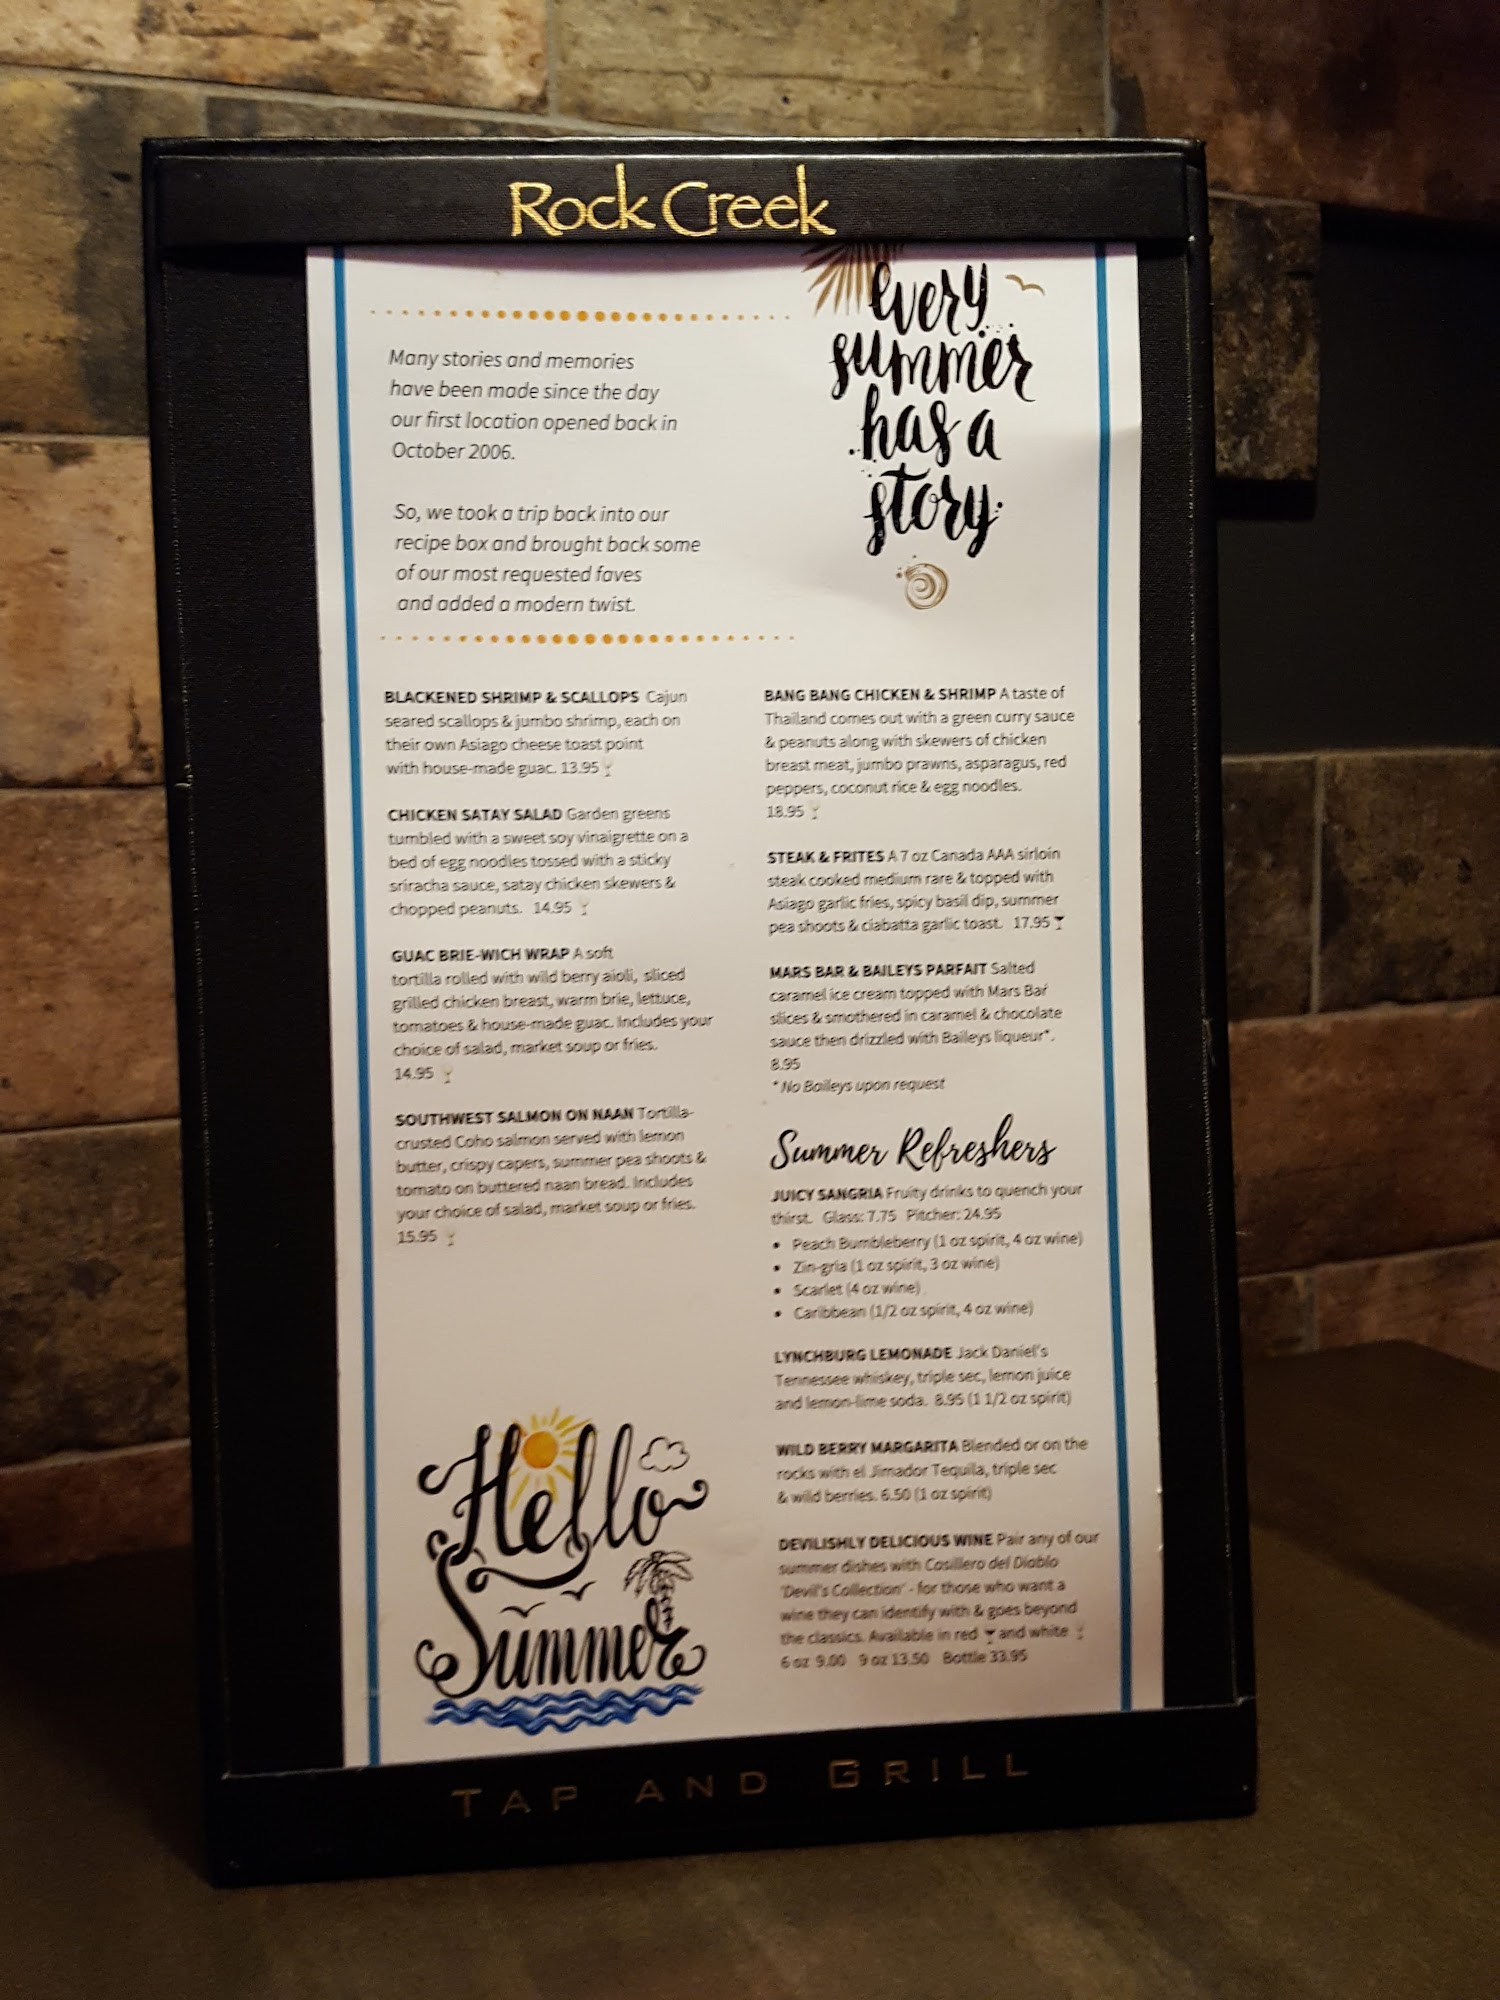 Rock Creek
every
summer
has a
story.
Many stories and memories
have been made since the day
our first location opened back in
October 2006.
So, we took a trip back into our
recipe box and brought back some
of our most requested faves
and added a modern twist.
BLACKENED SHRIMP & SCALLOPS Cajun
seared scallops & jumbo shrimp, each on
their own Asiago cheese toast point
with house-made guac. 13.95
CHICKEN SATAY SALAD Garden greens
tumbled with a sweet soy vinaigrette on a
bed of egg noodles tossed with a sticky
sriracha sauce, satay chicken skewers &
chopped peanuts. 14.95
GUAC BRIE-WICH WRAP A soft
tortilla rolled with wild berry aioli, sliced
grilled chicken breast, warm brie, lettuce,
tomatoes & house-made guac. Includes your
choice of salad, market soup or fries.
14.95
SOUTHWEST SALMON ON NAAN Tortilla-
crusted Coho salmon served with lemon
butter, crispy capers, summer pea shoots &
tomato on buttered naan bread. Includes
your choice of salad, market soup or fries.
15.95
Hello
Summer
BANG BANG CHICKEN & SHRIMP A taste of
Thailand comes out with a green curry sauce
& peanuts along with skewers of chicken
breast meat, jumbo prawns, asparagus, red
peppers, coconut rice & egg noodles.
18.95
STEAK & FRITES A 7 oz Canada AAA sirloin
steak cooked medium rare & topped with
Asiago garlic fries, spicy basil dip, summer
pea shoots & ciabatta garlic toast. 17.95
MARS BAR & BAILEYS PARFAIT Salted
caramel ice cream topped with Mars Bar
slices & smothered in caramel & chocolate
sauce then drizzled with Baileys liqueur*.
8.95
*No Baileys upon request
Summer Refreshers
JUICY SANGRIA Fruity drinks to quench your
thirst. Glass: 7.75 Pitcher: 24.95
• Peach Bumbleberry (1 oz spirit, 4 oz wine)
• Zin-gria (1 oz spirit, 3 oz wine)
• Scarlet (4 oz wine)
• Caribbean (1/2 oz spirit, 4 oz wine)
LYNCHBURG LEMONADE Jack Daniel's
Tennessee whiskey, triple sec, lemon juice
and lemon-lime soda. 8.95 (1 1/2 oz spirit)
WILD BERRY MARGARITA Blended or on the
rocks with el Jimador Tequila, triple sec
& wild berries. 6.50 (1 oz spirit)
DEVILISHLY DELICIOUS WINE Pair any of our
summer dishes with Casillero del Diablo
'Devil's Collection' - for those who want a
wine they can identify with & goes beyond
the classics. Available in red and white
6 oz 9.00 9 oz 13.50 Bottle 33.95
TAP AND GRILL